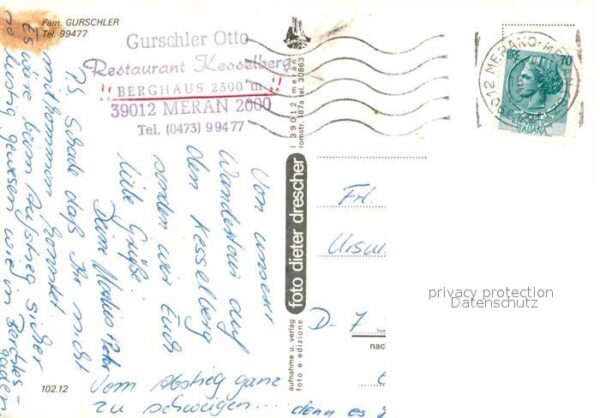 Fam. GURSCHLER
Tel. 99477
Gurschler Otto
Restaurant Kesselberg
"BERGHAUS 2300 m"
39012 MERAN 2000
Tel. (0473) 99477
39012 MERANO-ME
LIRE 70
ITALIANA
Von unserer
Wandertour auf
den Kesselberg
senden wir Euch
liebe Grüße
Deine
Vom Abstieg ganz
zu schweigen.... denn es
P.S. Schade daß Ihr nicht
mitkommen konntet.
Es wäre beim Aufstieg sicher
so lustig gewesen wie in Berchtes-
gaden
102.12
foto dieter drescher
I 39012 meran
romstr. 187a tel. 30863
aufnahme u. verlag
foto e edizione
Frl.
Ursu
D-7
nac
privacy protection
Datenschutz